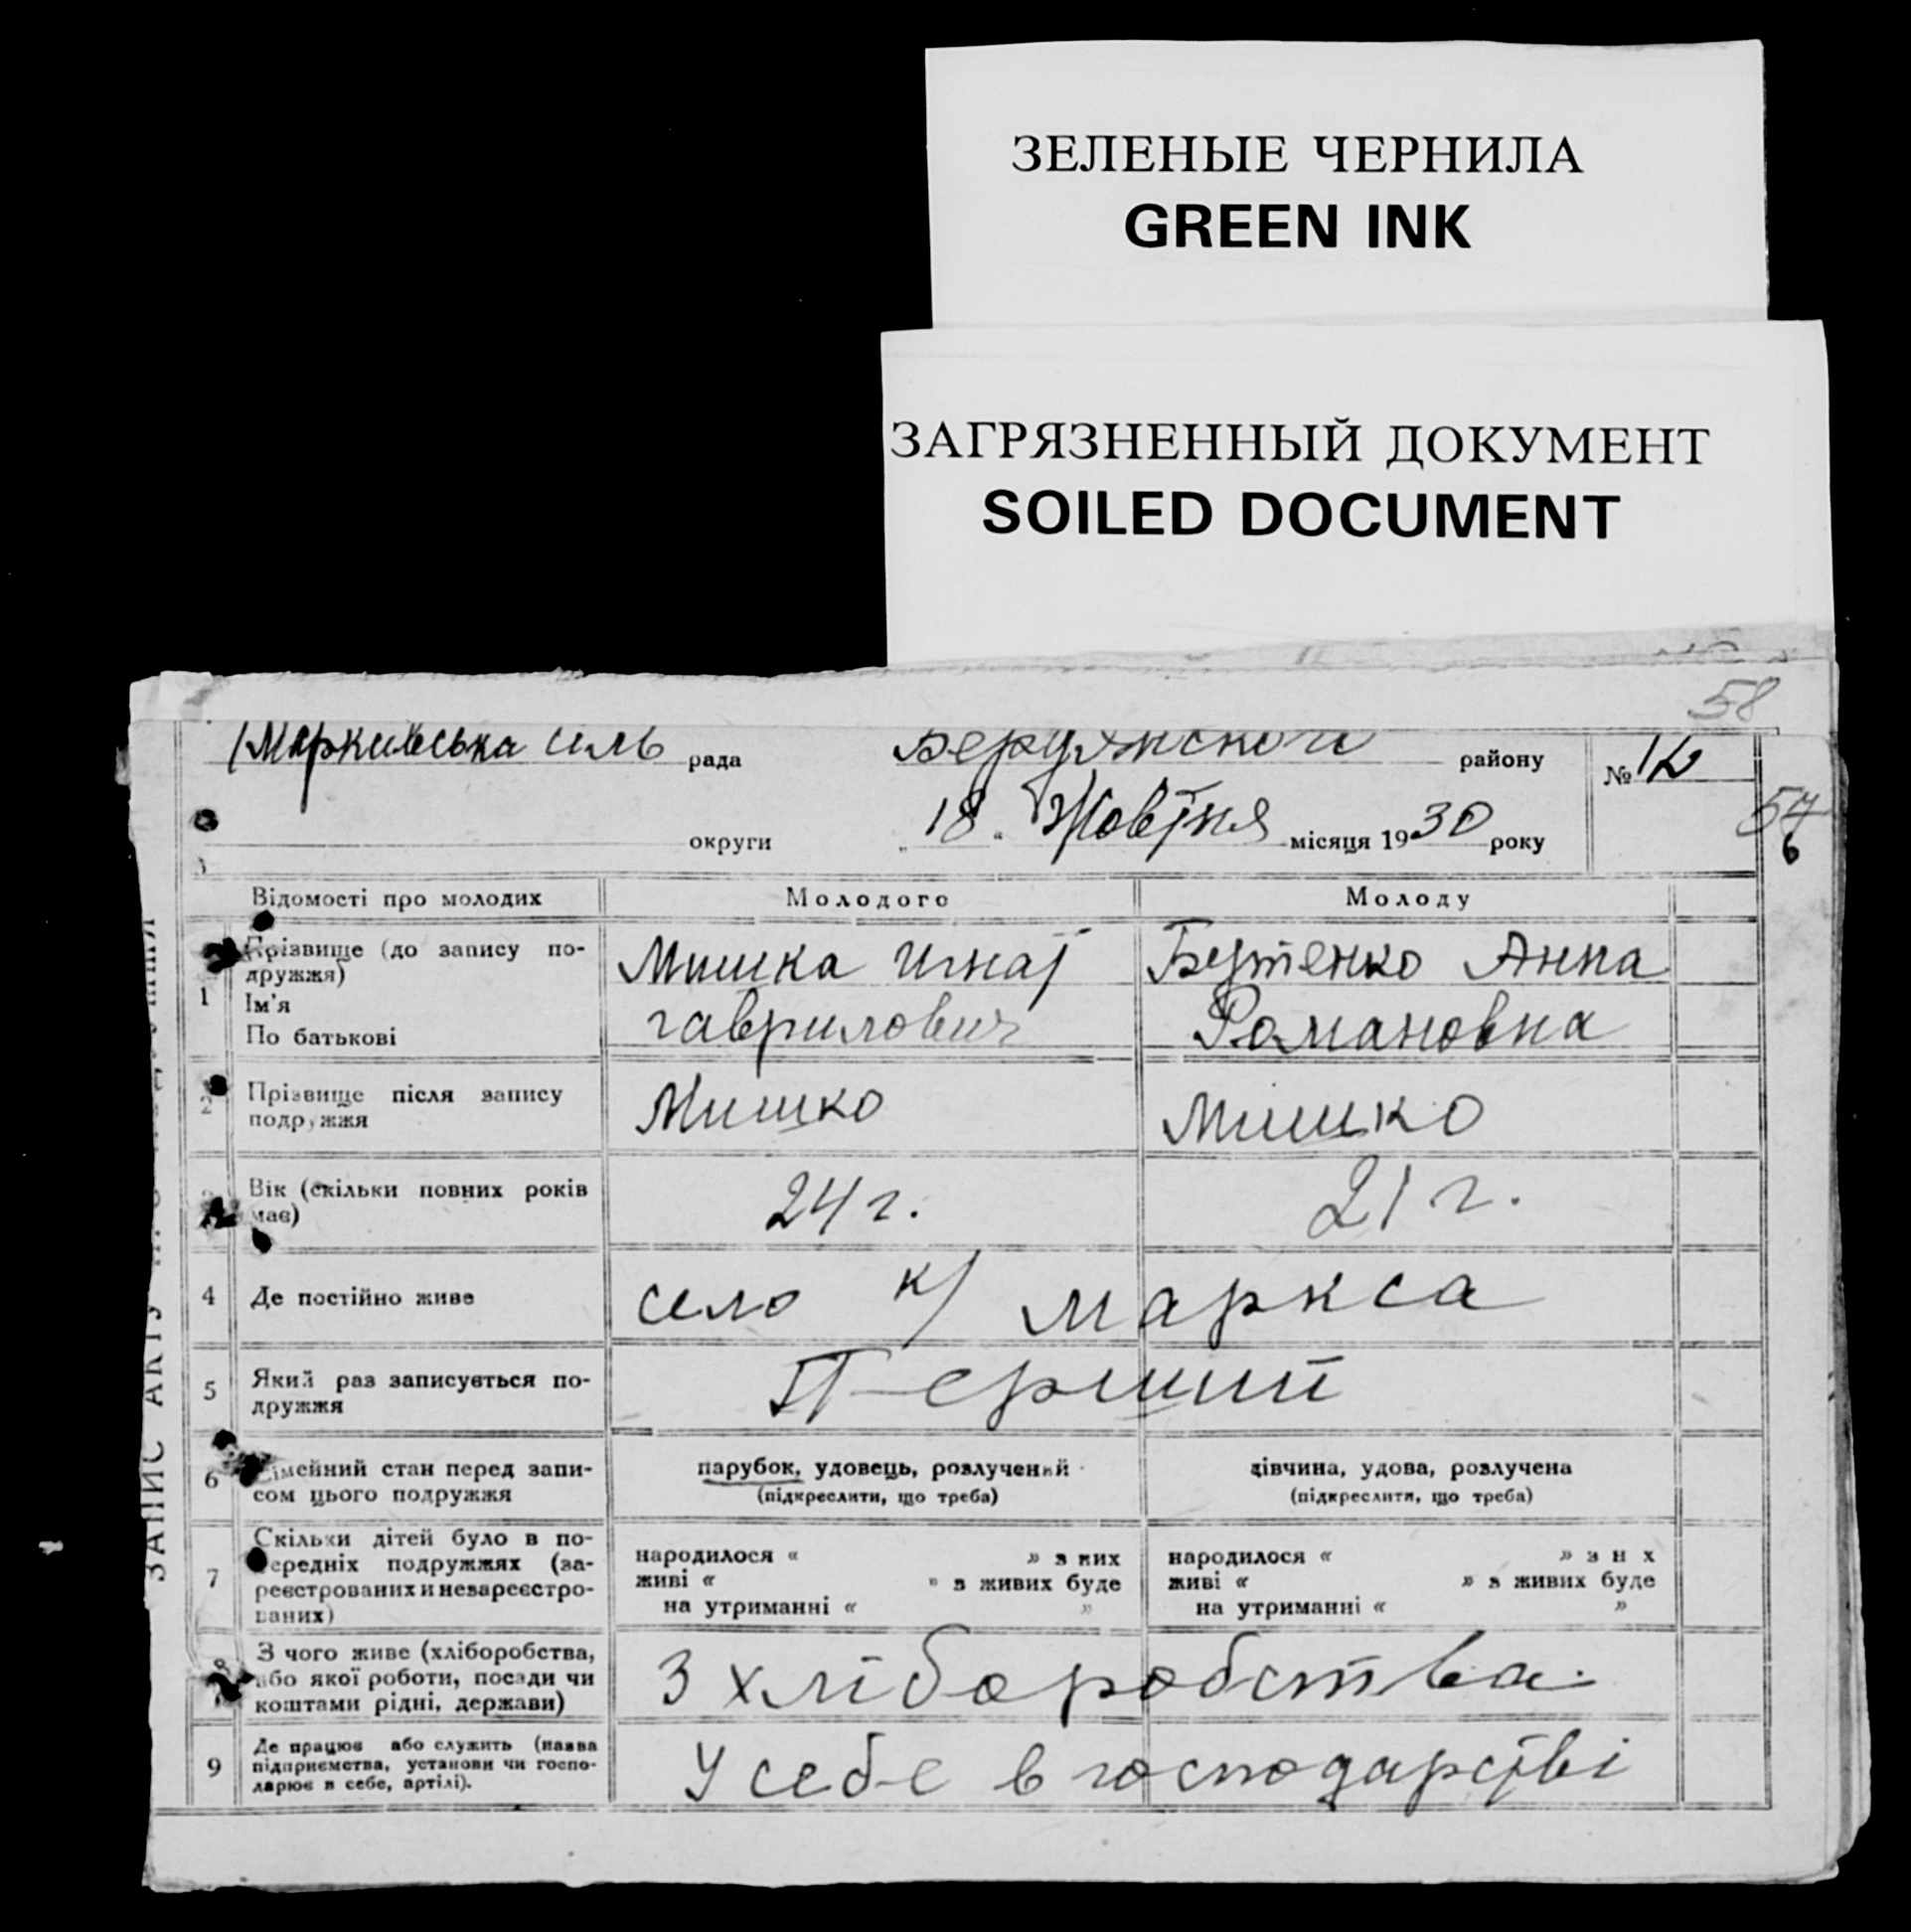 ЗЕЛЕНЫЕ ЧЕРНИЛА
GREEN INK
ЗАГРЯЗНЕННЫЙ ДОКУМЕНТ
SOILED DOCUMENT
58
Маркивська рада района району №12
18 Жовтня місяця 1930 року
округи
57
6
ЗАПИС АКТУ
Відомості про молодих Молодого Молоду
1 Прізвище (до запису по-
дружжя)
Ім'я
По батькові
Мишка Игнат
гаврилович
Бутенко Анна
Романовна
2 Прізвище після запису
подружжя
Мишко
Мишко
Вік (скільки повних років
має)
24 г.
21 г.
4 Де постійно живе
село к/ маркса
5 Який раз записується по-
дружжя
Перший
6 Сімейний стан перед запи-
сом цього подружжя
парубок, удовець, розлучений
(підкреслити, що треба)
дівчина, удова, розлучена
(підкреслити, що треба)
7 Скільки дітей було в по-
передніх подружжях (за-
реєстрованих и незареєстро-
ваних)
народилося « » з них
живі « » з живих буде
на утриманні « »
народилося « » з н х
живі « » з живих буде
на утриманні « »
8 З чого живе (хліборобства,
або якої роботи, посади чи
коштами рідні, держави)
З хліборобства.
9 Де працює або служить (назва
підприємства, установи чи госпо-
дарює в себе, артілі).
У себе в господарстві